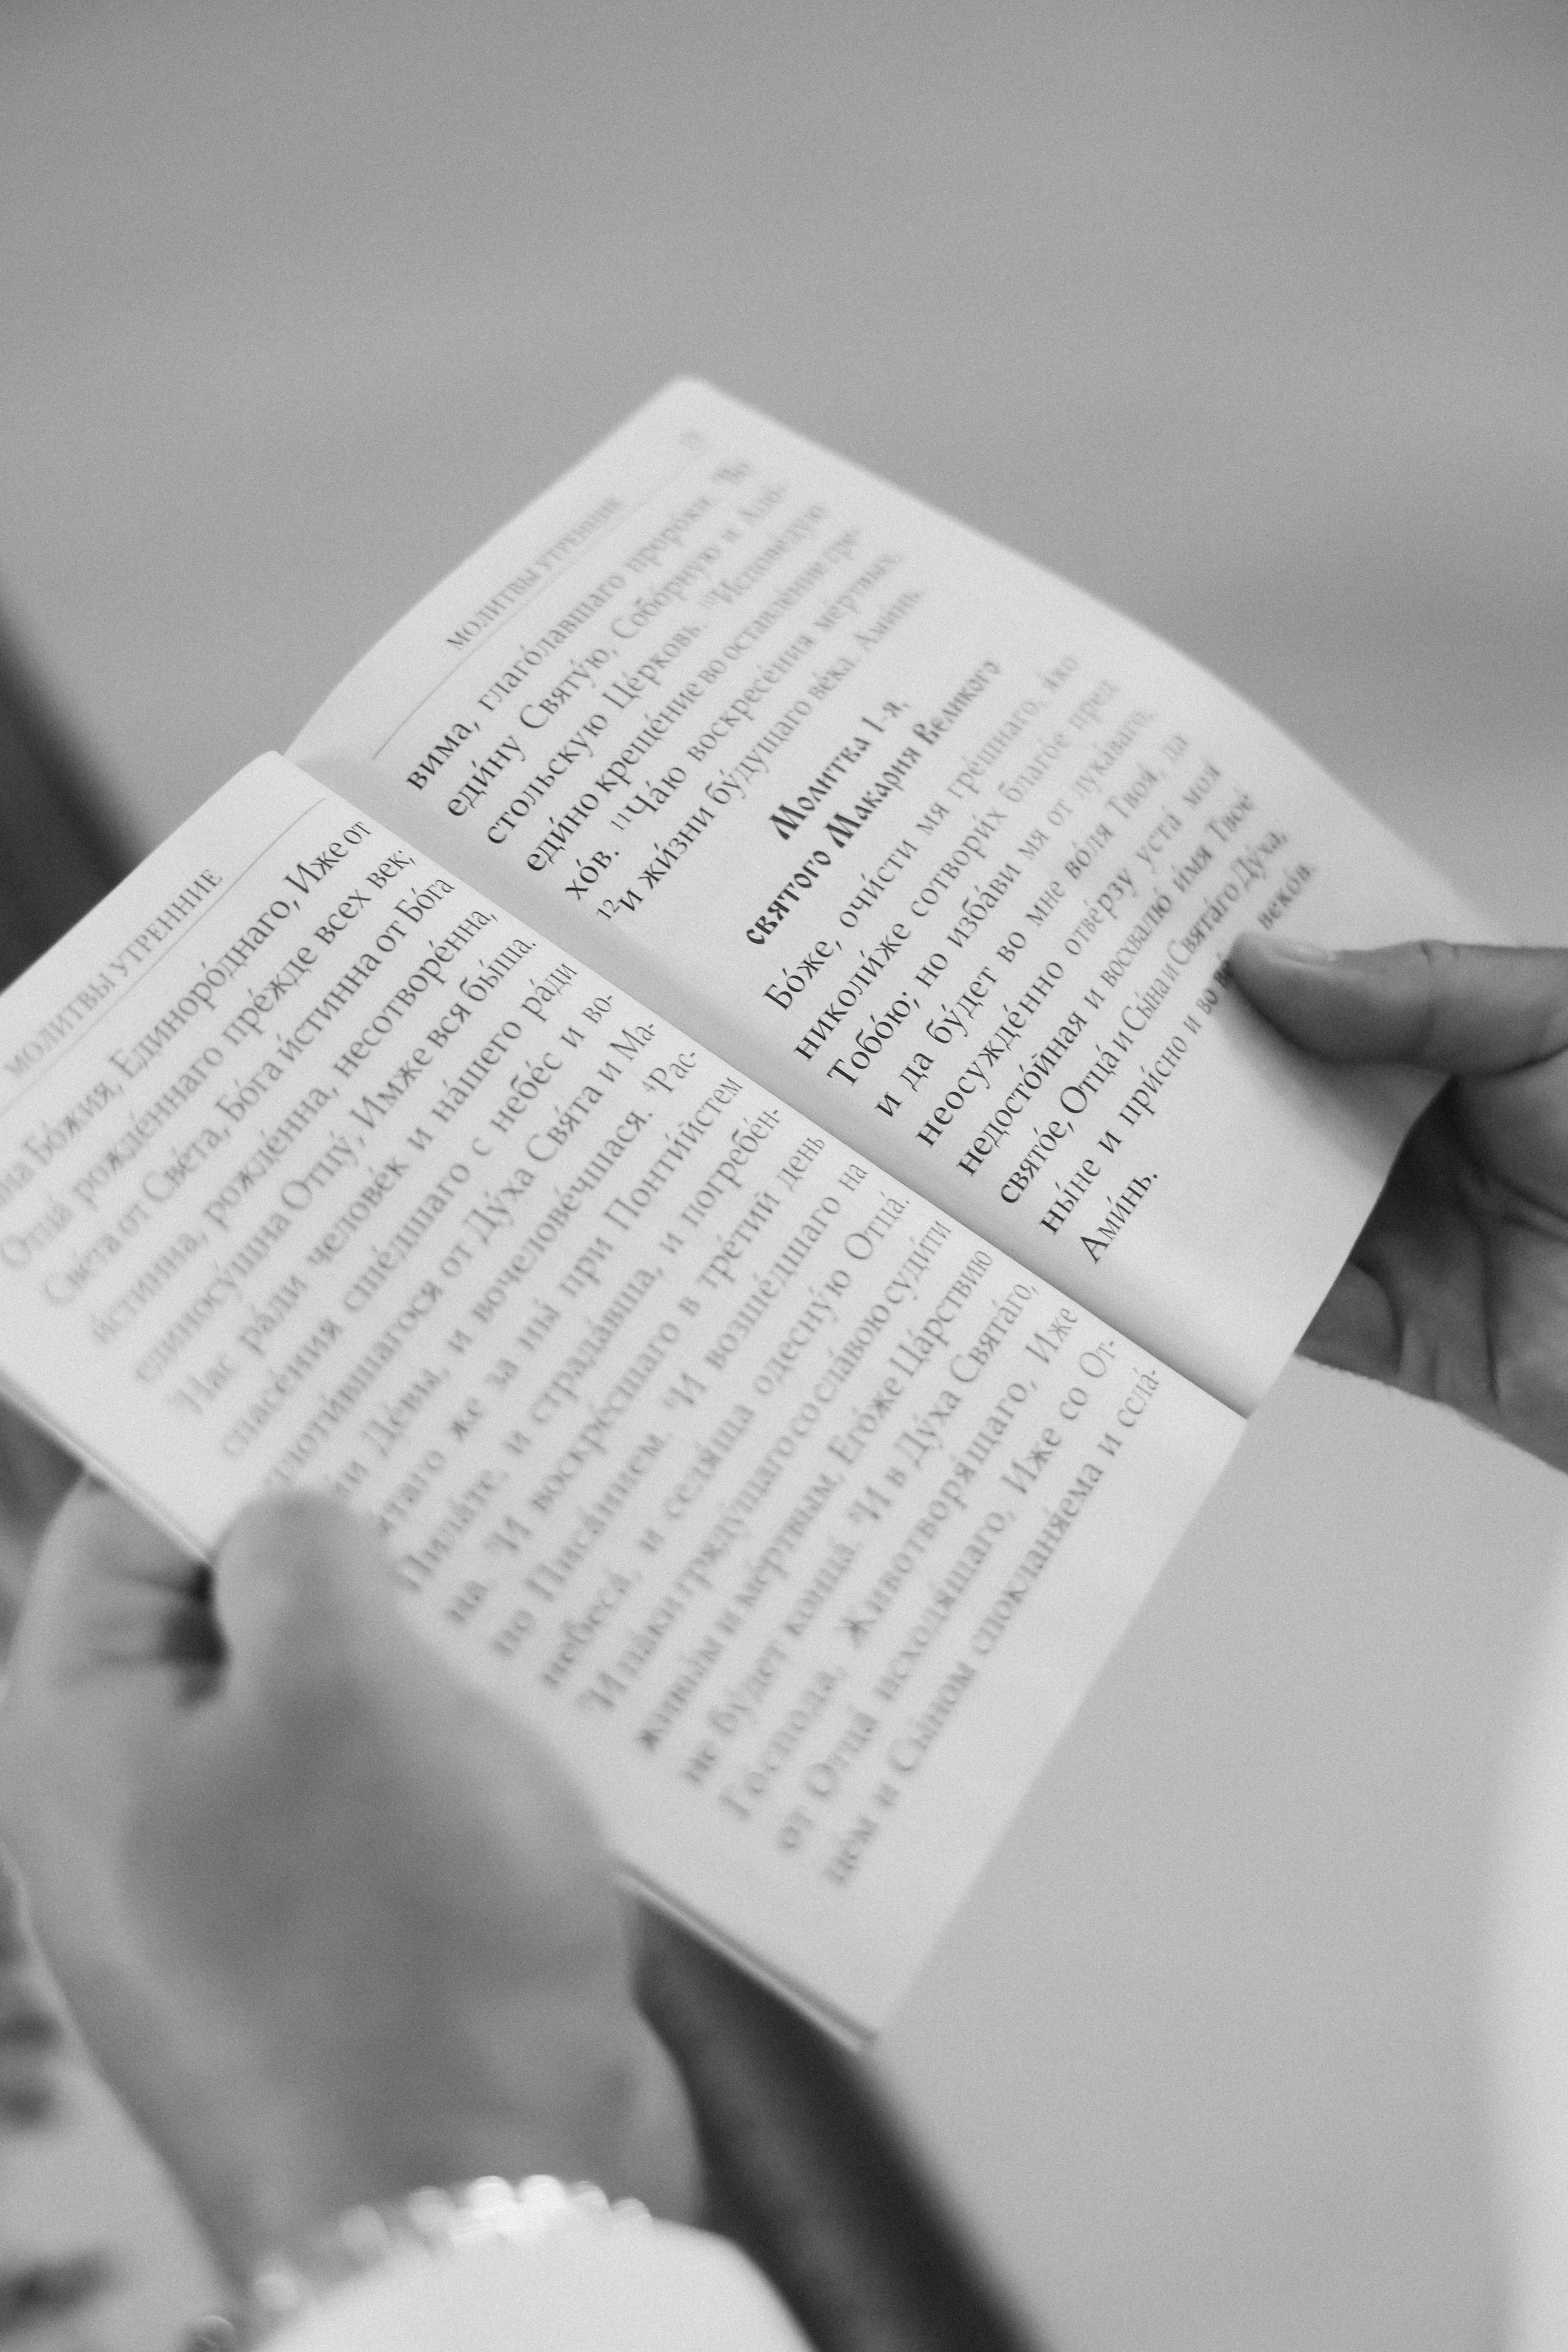 МОЛИТВЫ УТРЕННИЕ
Бо́жия, Единоро́днаго, Иже от
Отца́ рожде́ннаго пре́жде всех век;
Све́та от Све́та, Бо́га и́стинна от Бо́га
и́стинна, рожде́нна, несотворе́нна,
единосу́щна Отцу́, Имже вся бы́ша.
³Нас ра́ди челове́к и на́шего ра́ди
спасе́ния сше́дшаго с небе́с и во-
плоти́вшагося от Ду́ха Свя́та и Ма-
Де́вы, и вочелове́чшася. ⁴Рас-
же за ны́ при Понти́йстем
Пила́те, и страда́вша, и погребе́н-
на. ⁵И воскре́сшаго в тре́тий день
по Писа́нием. ⁶И возше́дшаго на
небеса́, и седя́ща одесну́ю Отца́.
⁷И па́ки гряду́щаго со сла́вою суди́ти
живы́м и ме́ртвым, Его́же Ца́рствию
не бу́дет конца́. ⁸И в Ду́ха Свята́го,
Го́спода, Животворя́щаго, Иже
от Отца́ исходя́щаго, Иже со От-
це́м и Сы́ном спокланя́ема и ссла́-
МОЛИТВЫ УТРЕННИЕ
вима, глаго́лавшаго проро́ки. ⁹Во
еди́ну Святу́ю, Собо́рную и Апо́-
стольскую Це́рковь. ¹⁰Испове́дую
еди́но креще́ние во оставле́ние гре-
хо́в. ¹¹Ча́ю воскресе́ния ме́ртвых,
¹²и жи́зни бу́дущаго ве́ка. Ами́нь.
Молитва 1-я,
святого Макария Великого
Бо́же, очи́сти мя гре́шнаго, я́ко
николи́же сотвори́х благо́е пред
Тобо́ю; но изба́ви мя от лука́ваго,
и да бу́дет во мне во́ля Твоя́, да
неосужде́нно отве́рзу уста́ моя́
недосто́йная и восхвалю́ и́мя Твое́
свято́е, Отца́ и Сы́на и Свята́го Ду́ха,
ны́не и при́сно и во веко́в.
Ами́нь.